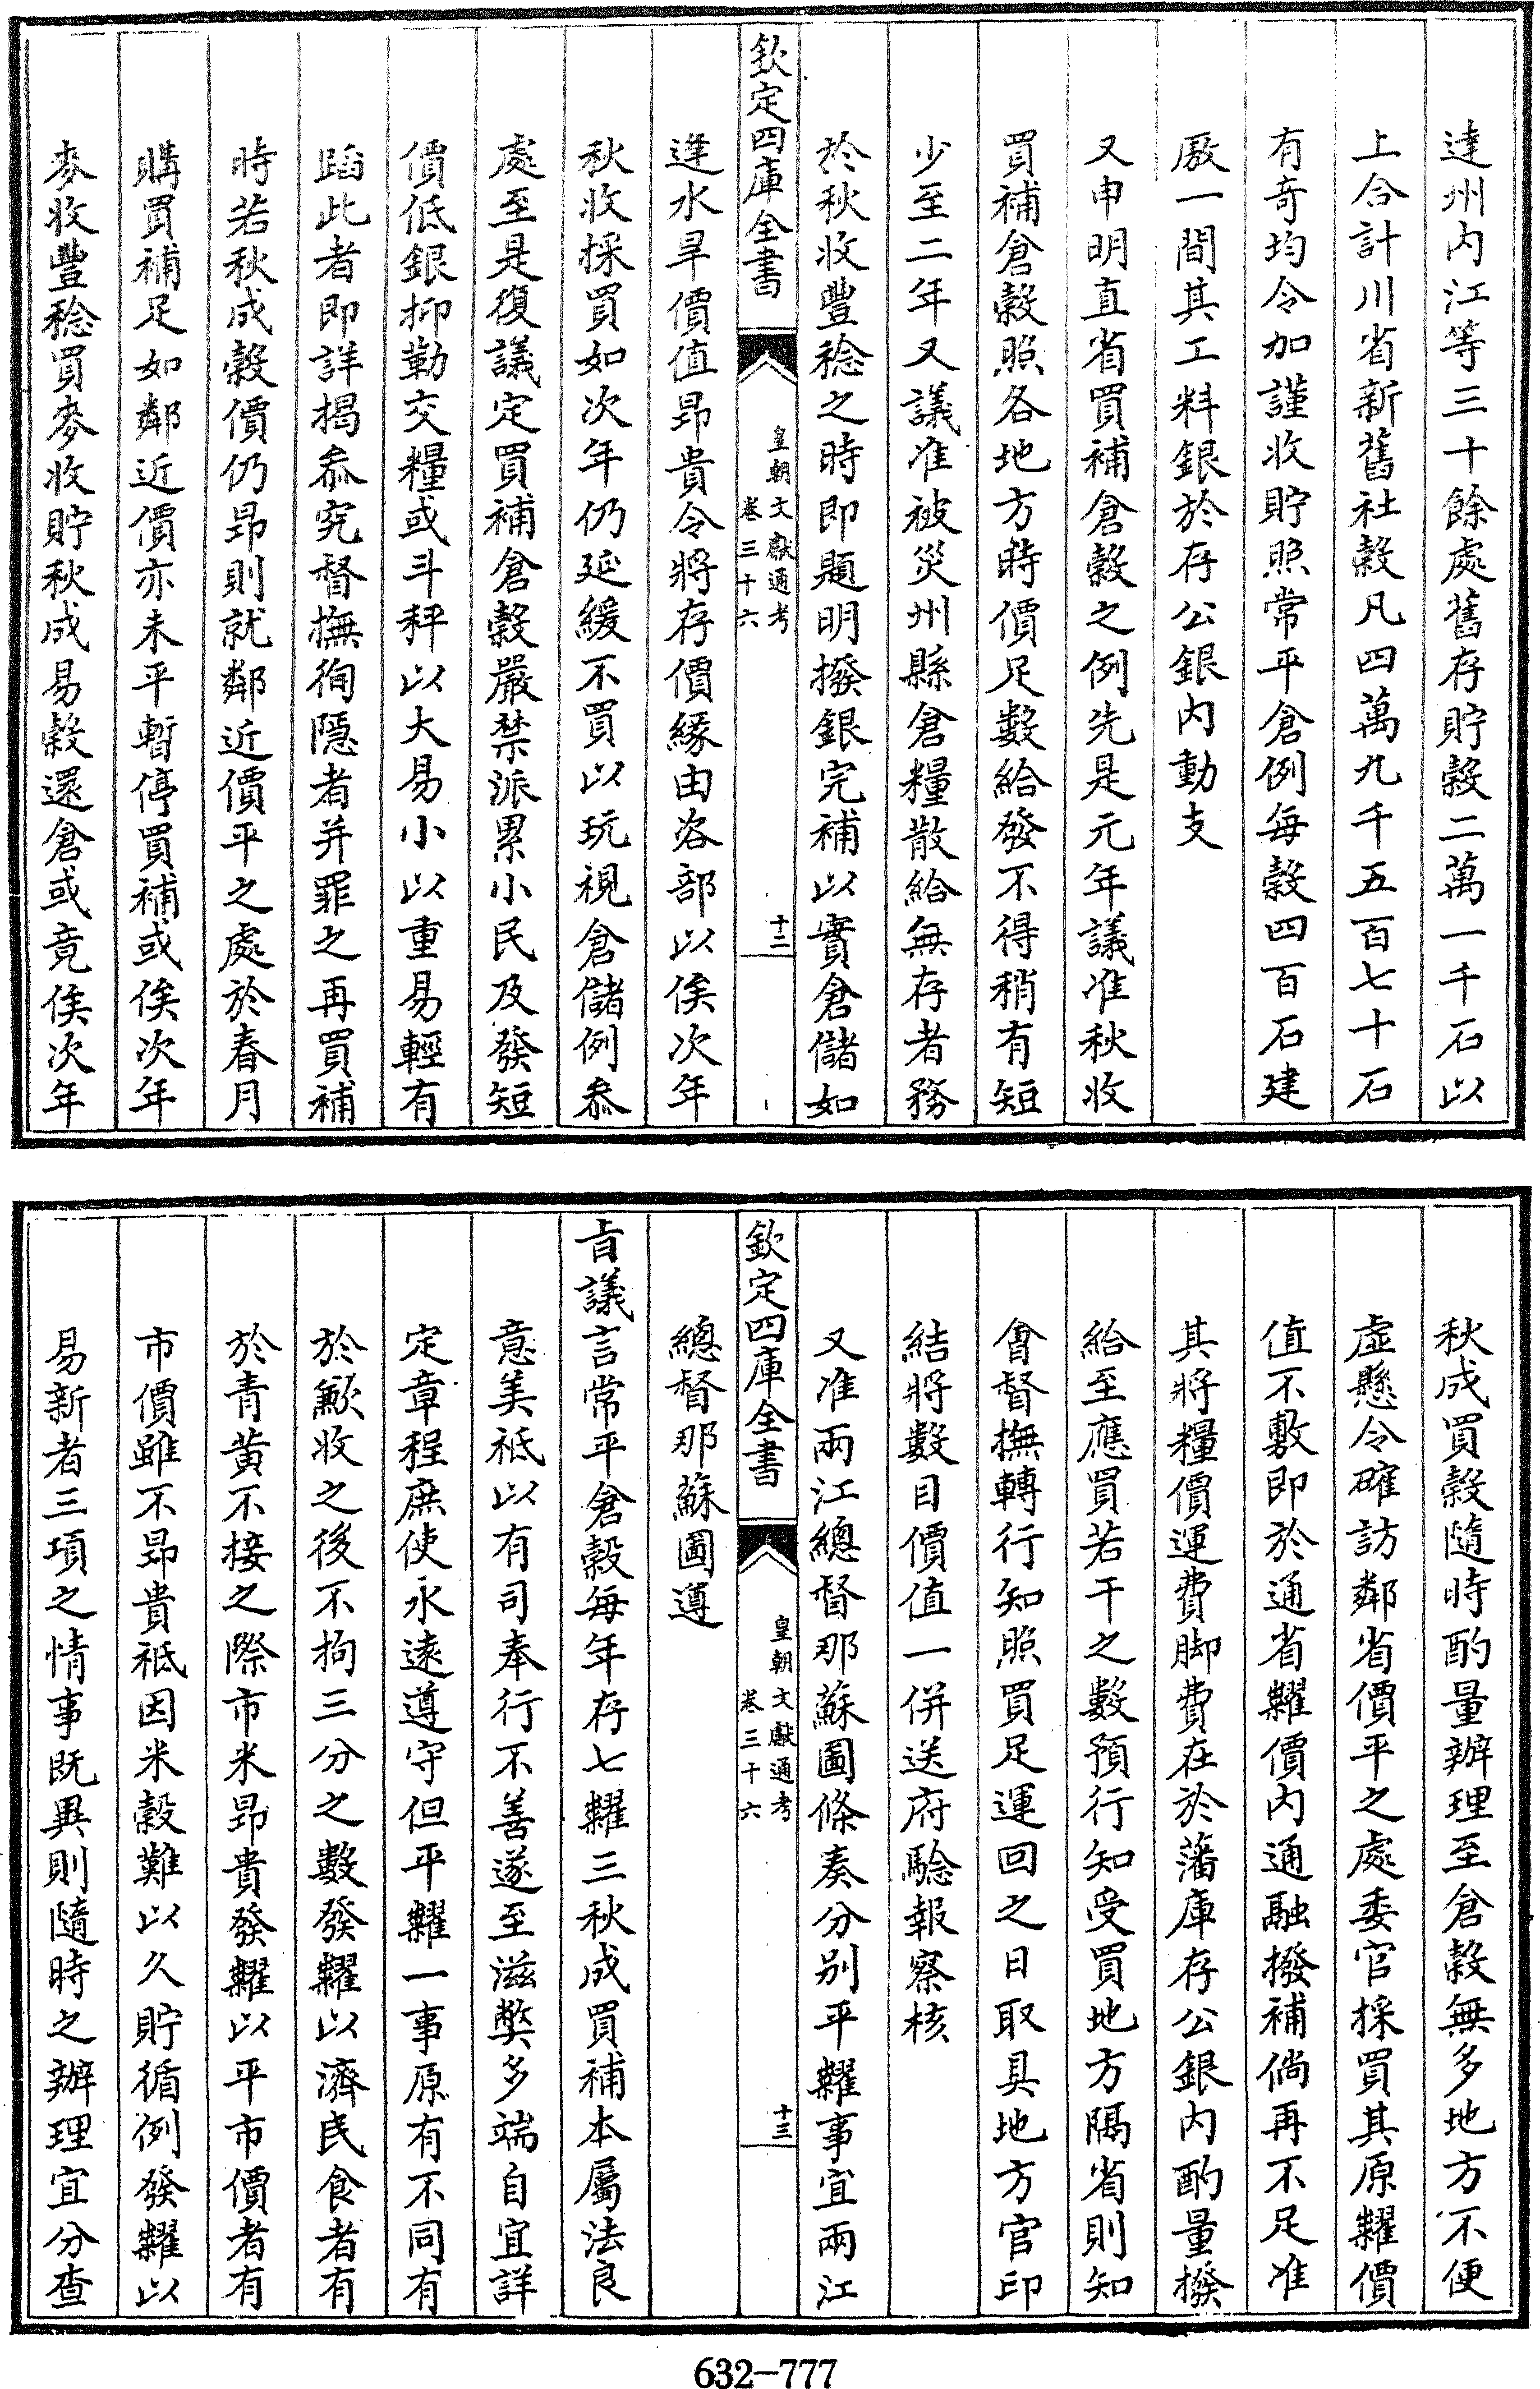 達州内江等三十餘處舊存貯穀二萬一千石以
上合計川省新舊社穀凡四萬九千五百七十石
有奇均令加謹收貯照常平倉例每穀四百石建
厫一間其工料銀於存公銀内動支
又申明直省買補倉穀之例先是元年議准秋收
買補倉穀照各地方時價足數給發不得稍有短
少至二年又議准被災州縣倉糧散給無存者務
於秋收豐稔之時即題明撥銀完補以實倉儲如
欽定四庫全書
皇朝文獻通考
卷三十六
十二
逢水旱價值昻貴令將存價緣由咨部以俟次年
秋收採買如次年仍延緩不買以玩視倉儲例叅
處至是復議定買補倉穀嚴禁派累小民及發短
價低銀抑勒交糧或斗秤以大易小以重易輕有
蹈此者即詳揭叅究督撫徇隱者并罪之再買補
時若秋成穀價仍昻則就鄰近價平之處於春月
購買補足如鄰近價亦未平暫停買補或俟次年
麥收豐稔買麥收貯秋成易穀還倉或竟俟次年
秋成買穀隨時酌量辦理至倉穀無多地方不便
虛懸令確訪鄰省價平之處委官採買其原糶價
值不敷即於通省糶價内通融撥補倘再不足准
其將糧價運費脚費在於藩庫存公銀内酌量撥
給至應買若干之數預行知受買地方隔省則知
會督撫轉行知照買足運回之日取具地方官印
結將數目價值一併送府驗報察核
又准兩江總督那蘇圖條奏分别平糶事宜兩江
欽定四庫全書
皇朝文獻通考
卷三十六
十三
總督那蘇圖遵
㫖議言常平倉穀每年存七糶三秋成買補本屬法良
意美祗以有司奉行不善遂至滋弊多端自宜詳
定章程庶使永遠遵守但平糶一事原有不同有
於歉收之後不拘三分之數發糶以濟民食者有
於青黄不接之際市米昻貴發糶以平市價者有
市價雖不昻貴祗因米穀難以久貯循例發糶以
易新者三項之情事既異則隨時之辦理宜分查
632-777